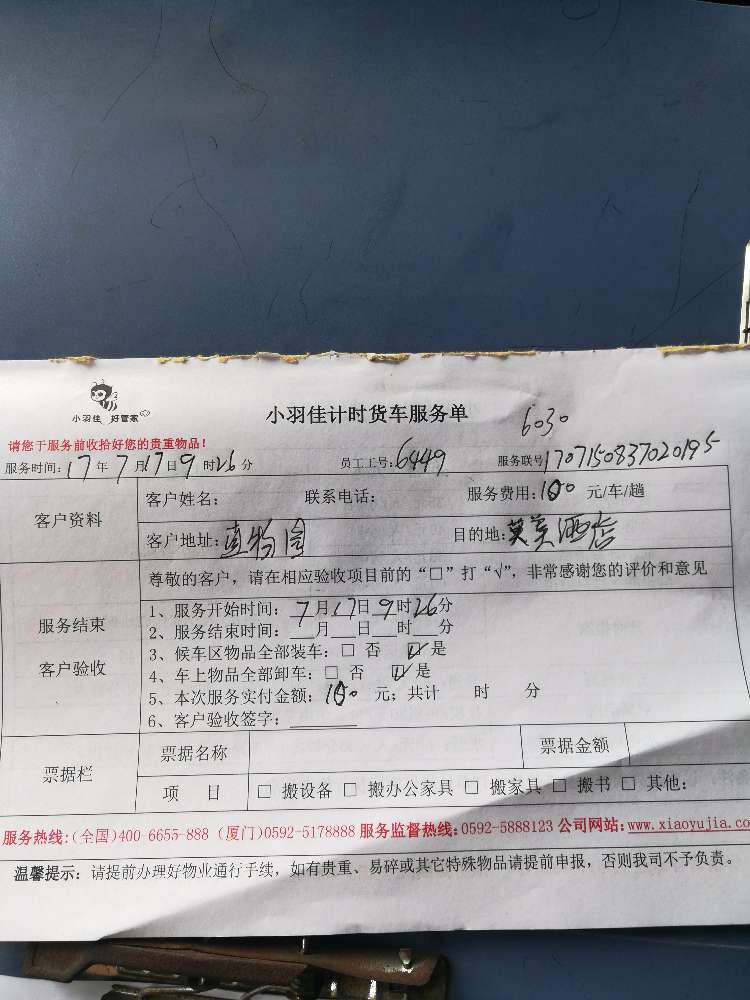 小羽佳 好管家
小羽佳计时货车服务单
6030
请您于服务前收拾好您的贵重物品！
服务时间：17年7月17日9时26分 员工工号：6449 服务联号1707150837020195
客户资料
客户姓名： 联系电话： 服务费用：100 元/车/趟
客户地址：植物园 目的地：英美酒店
服务结束
客户验收
尊敬的客户，请在相应验收项目前的“□”打“√”，非常感谢您的评价和意见
1、服务开始时间：7月17日9时26分
2、服务结束时间：___月___日___时___分
3、候车区物品全部装车：□ 否 ☑ 是
4、车上物品全部卸车：□ 否 ☑ 是
5、本次服务实付金额：100 元；共计 时 分
6、客户验收签字：________
票据栏
票据名称 票据金额
项 目 □ 搬设备 □ 搬办公家具 □ 搬家具 □ 搬书 □ 其他：
服务热线：(全国)400-6655-888 (厦门)0592-5178888 服务监督热线：0592-5888123 公司网站：www.xiaoyujia.co
温馨提示：请提前办理好物业通行手续，如有贵重、易碎或其它特殊物品请提前申报，否则我司不予负责。